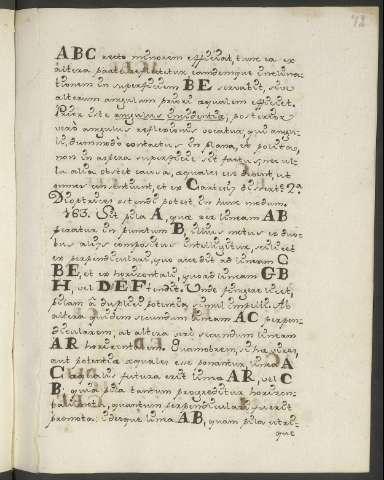 72
ABC recto minorem efficiat, tunc ea ex
altera parte reflectetur, eamdemque inclina-
tionem in superficiem BE servabit, sive
alterum angulum priori aequalem efficiet.
Prior iste angulus incidentiae, posterior
vero angulus reflexionis vocatur, qui angu-
li, dummodo contactus in plana, et polita,
non in aspera superficie sit factus, nec ul-
la alia obstet causa, aequales erunt, ut
omnes consentiunt, et ex Cartesii dissert. 2a
Dioptrices ostendi potest in hunc modum.
163. Sit pila A, quae per lineam AB
feratur in punctum B, illius motus ex duo-
bus aliis compositus intelligitur, scilicet
ex perpendiculari, quo accedit ad lineam C
BE, et ex horizontali, quo ad lineam GB
H, vel DEF tendit. Unde pingere licet,
pilam a duplici potentia simul impelli. Ab
altera quidem secundum lineam AC perpen-
dicularem, ab altera vero secundum lineam
AR horizontalem. Quamobrem, si hae vires,
aut potentiae aequales esse ponantur, linea A
C aequalis futura erit lineae AR, vel C
B; quia pila tantum progreditur horizon-
taliter, quantum perpendiculari fuerit
promota: ideoque linea AB, quam pila utri-
que